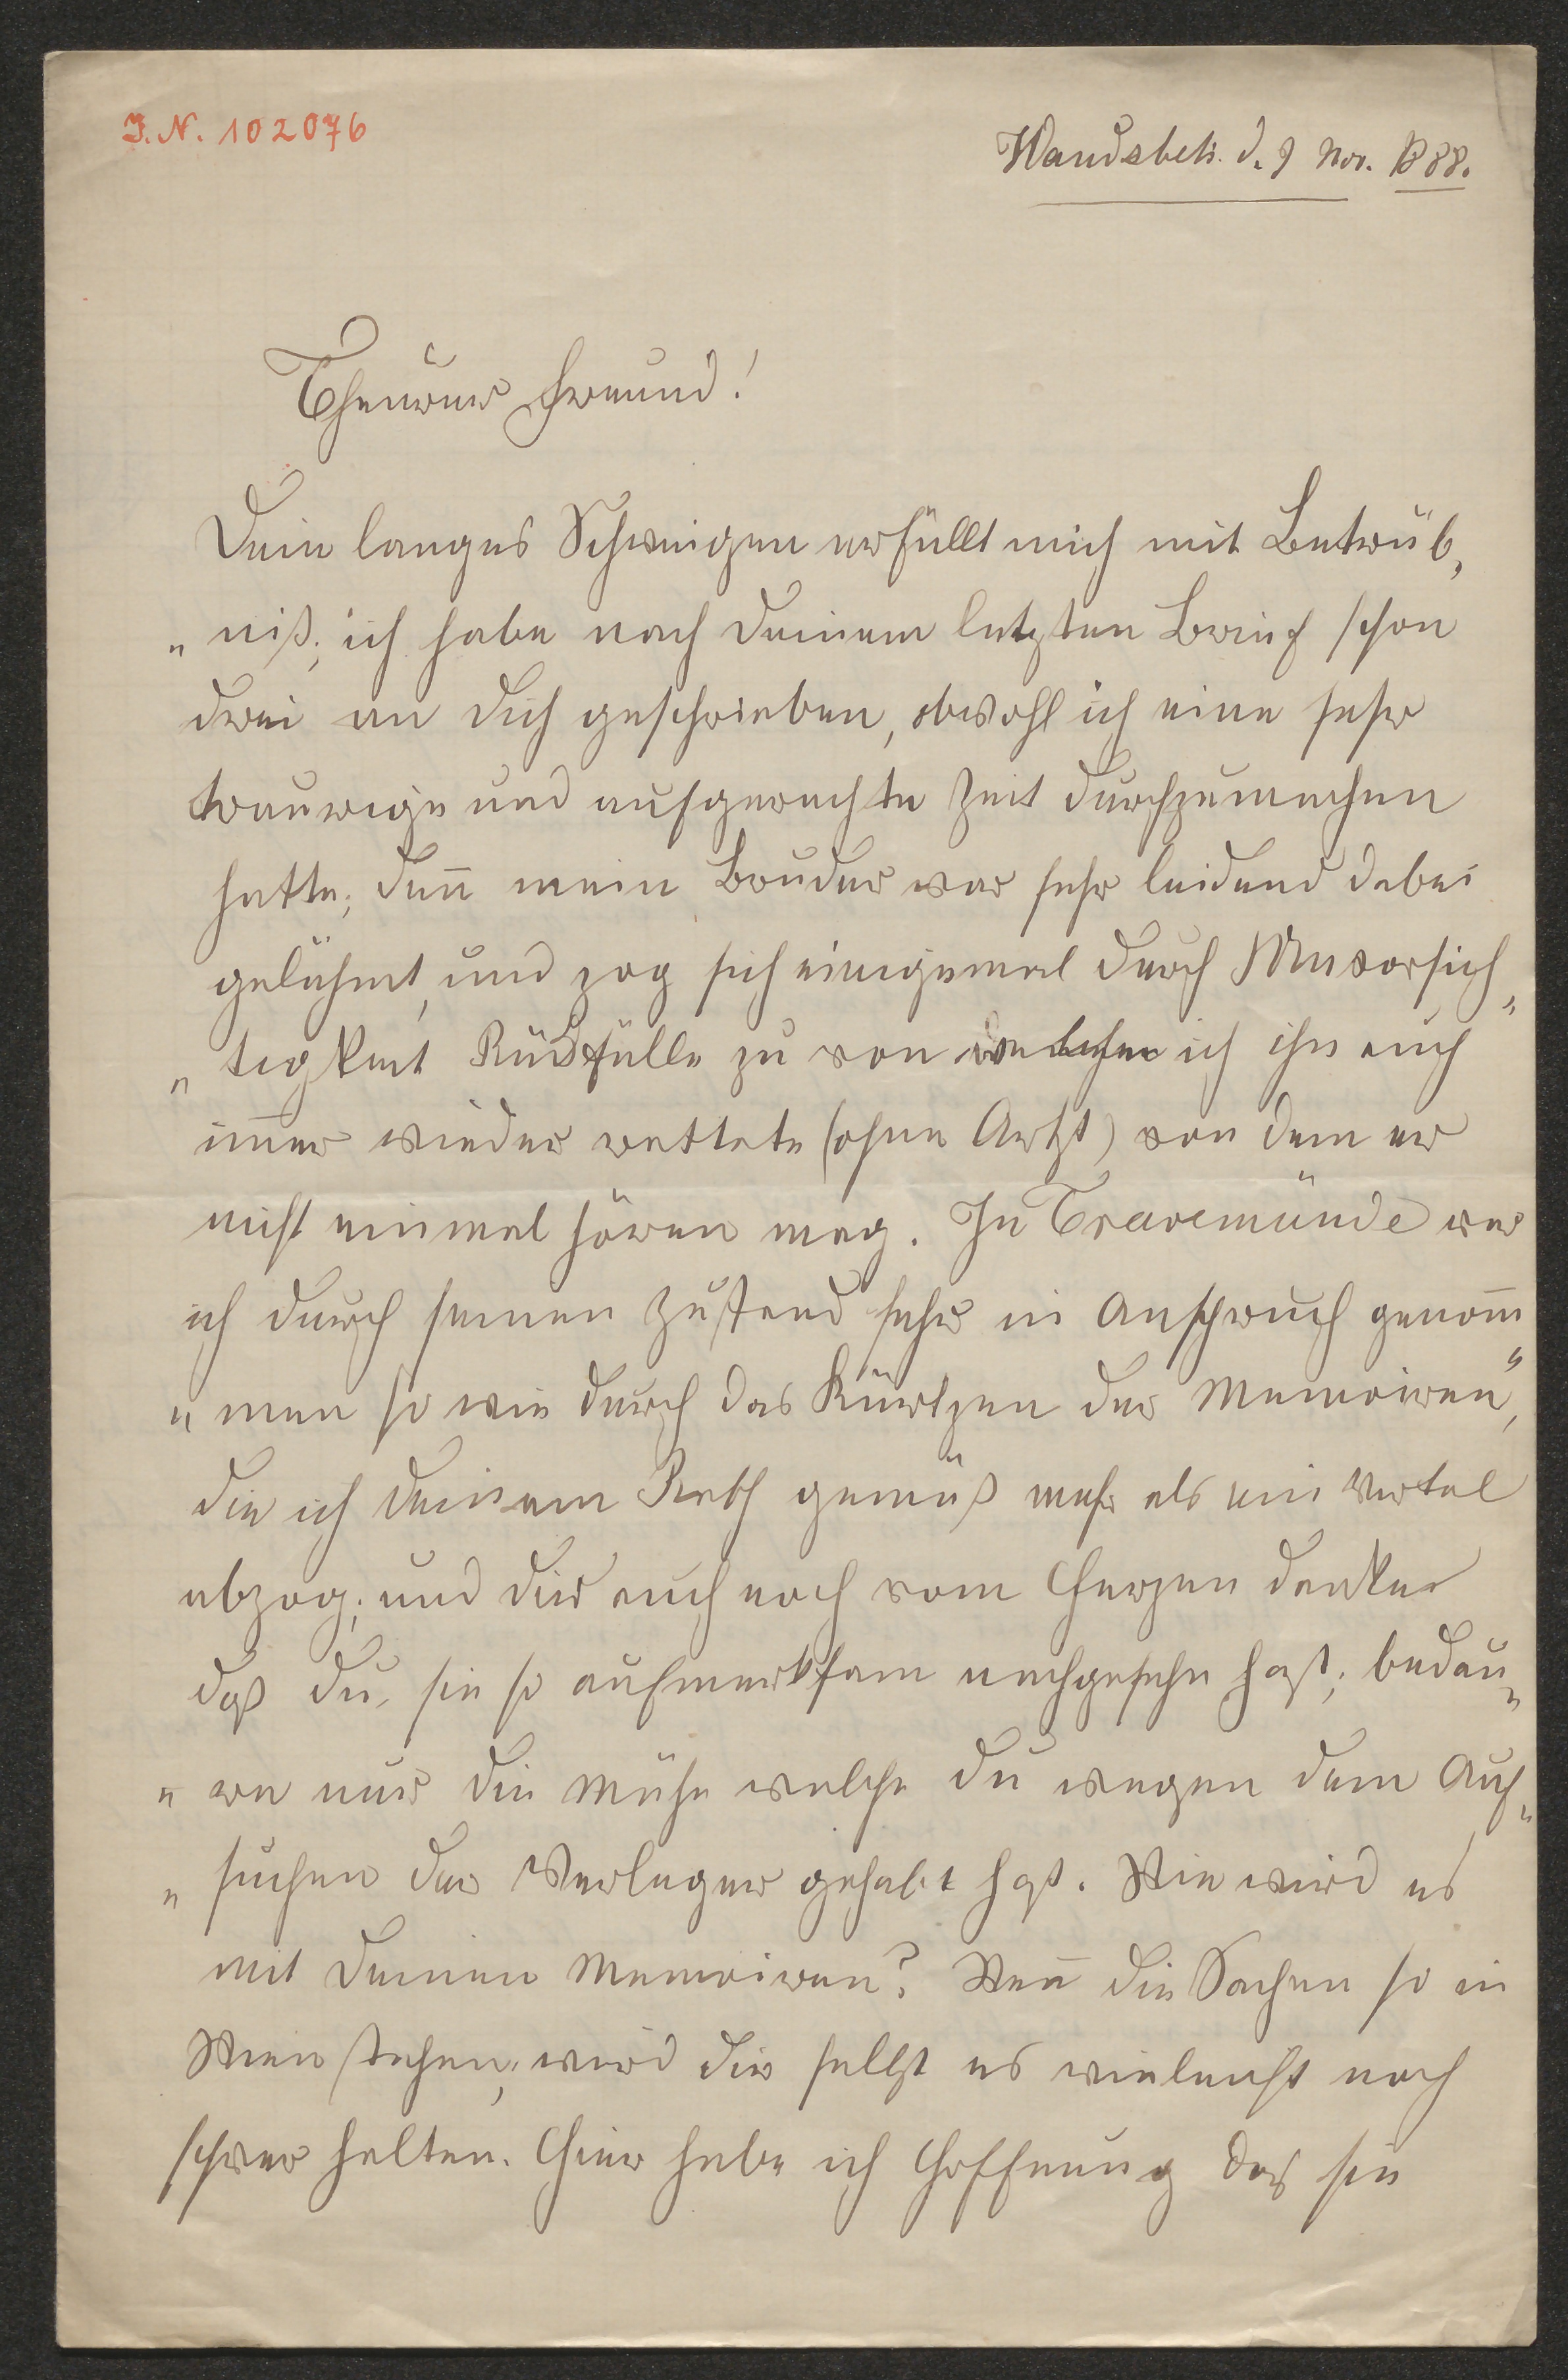 J. N. 102076
Wandsbek. d. 9 Nov. 1888.
Theurer Freund!
Dein langes Schweigen erfüllt mich mit Betrüb„
„niß; ich habe nach Deinem letzten Brief schon
drei an Dich geschrieben, obwohl ich eine sehr
traurige und aufgerechte Zeit durchzumachen
hatte; deñ mein Bruder war sehr leidend dabei
gelähmt, und zog sich einigemal durch Unvorsich„
„tigkeit Rückfälle zu von welchen ich ihn auch
im̄er wieder rettete (ohne Artzt) von dem er
nicht einmal hören mag. In Travemünde war
ich durch seinen Zustand sehr in Anspruch genom̄
„men so wie durch das Kürtzen der Memoiren",
die ich Deinem Rath gemäß mehr als ein Viertel
abzog; und Dir auch noch vom Herzen danke
daß Du, sie so aufmerksam nachgesehn hast; bedau„
„re nur die Mühe welche Du wegen dem Auf„
„suchen der Verleger gehabt hast. Wie wird es
mit Deinen Memoiren? Weñ die Sachen so in
Wien stehen, wird Dir selbst es vieleicht noch
schwer halten. Hier habe ich Hoffnung das sie